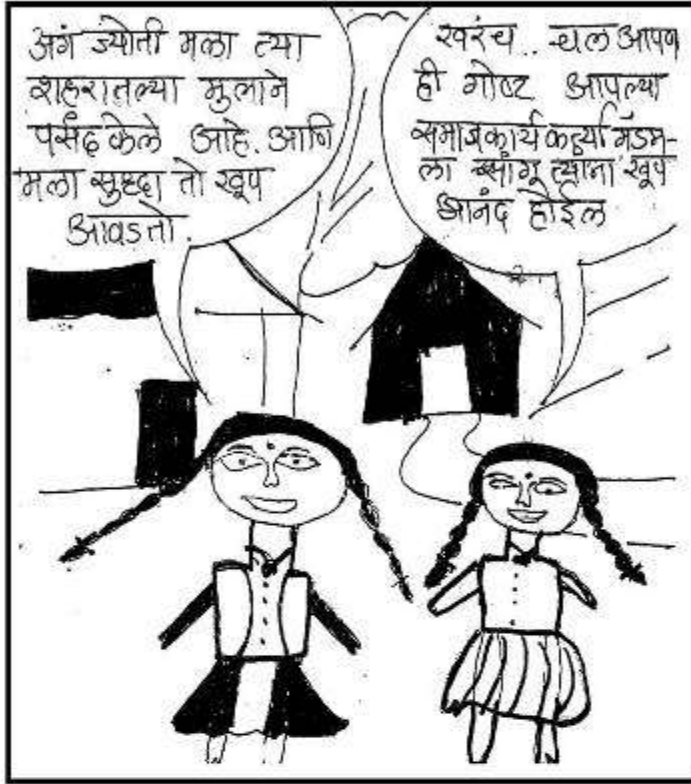 अगं ज्योती मला त्या
शहरातल्या मुलाने
पसंद केले आहे. आणि
मला सुध्दा तो खूप
आवडतो.
खरंच .. चल आपण
ही गोष्ट आपल्या
समाजकार्य कर्त्या मॅडम-
ला सांगू त्यांना खूप
आनंद होईल